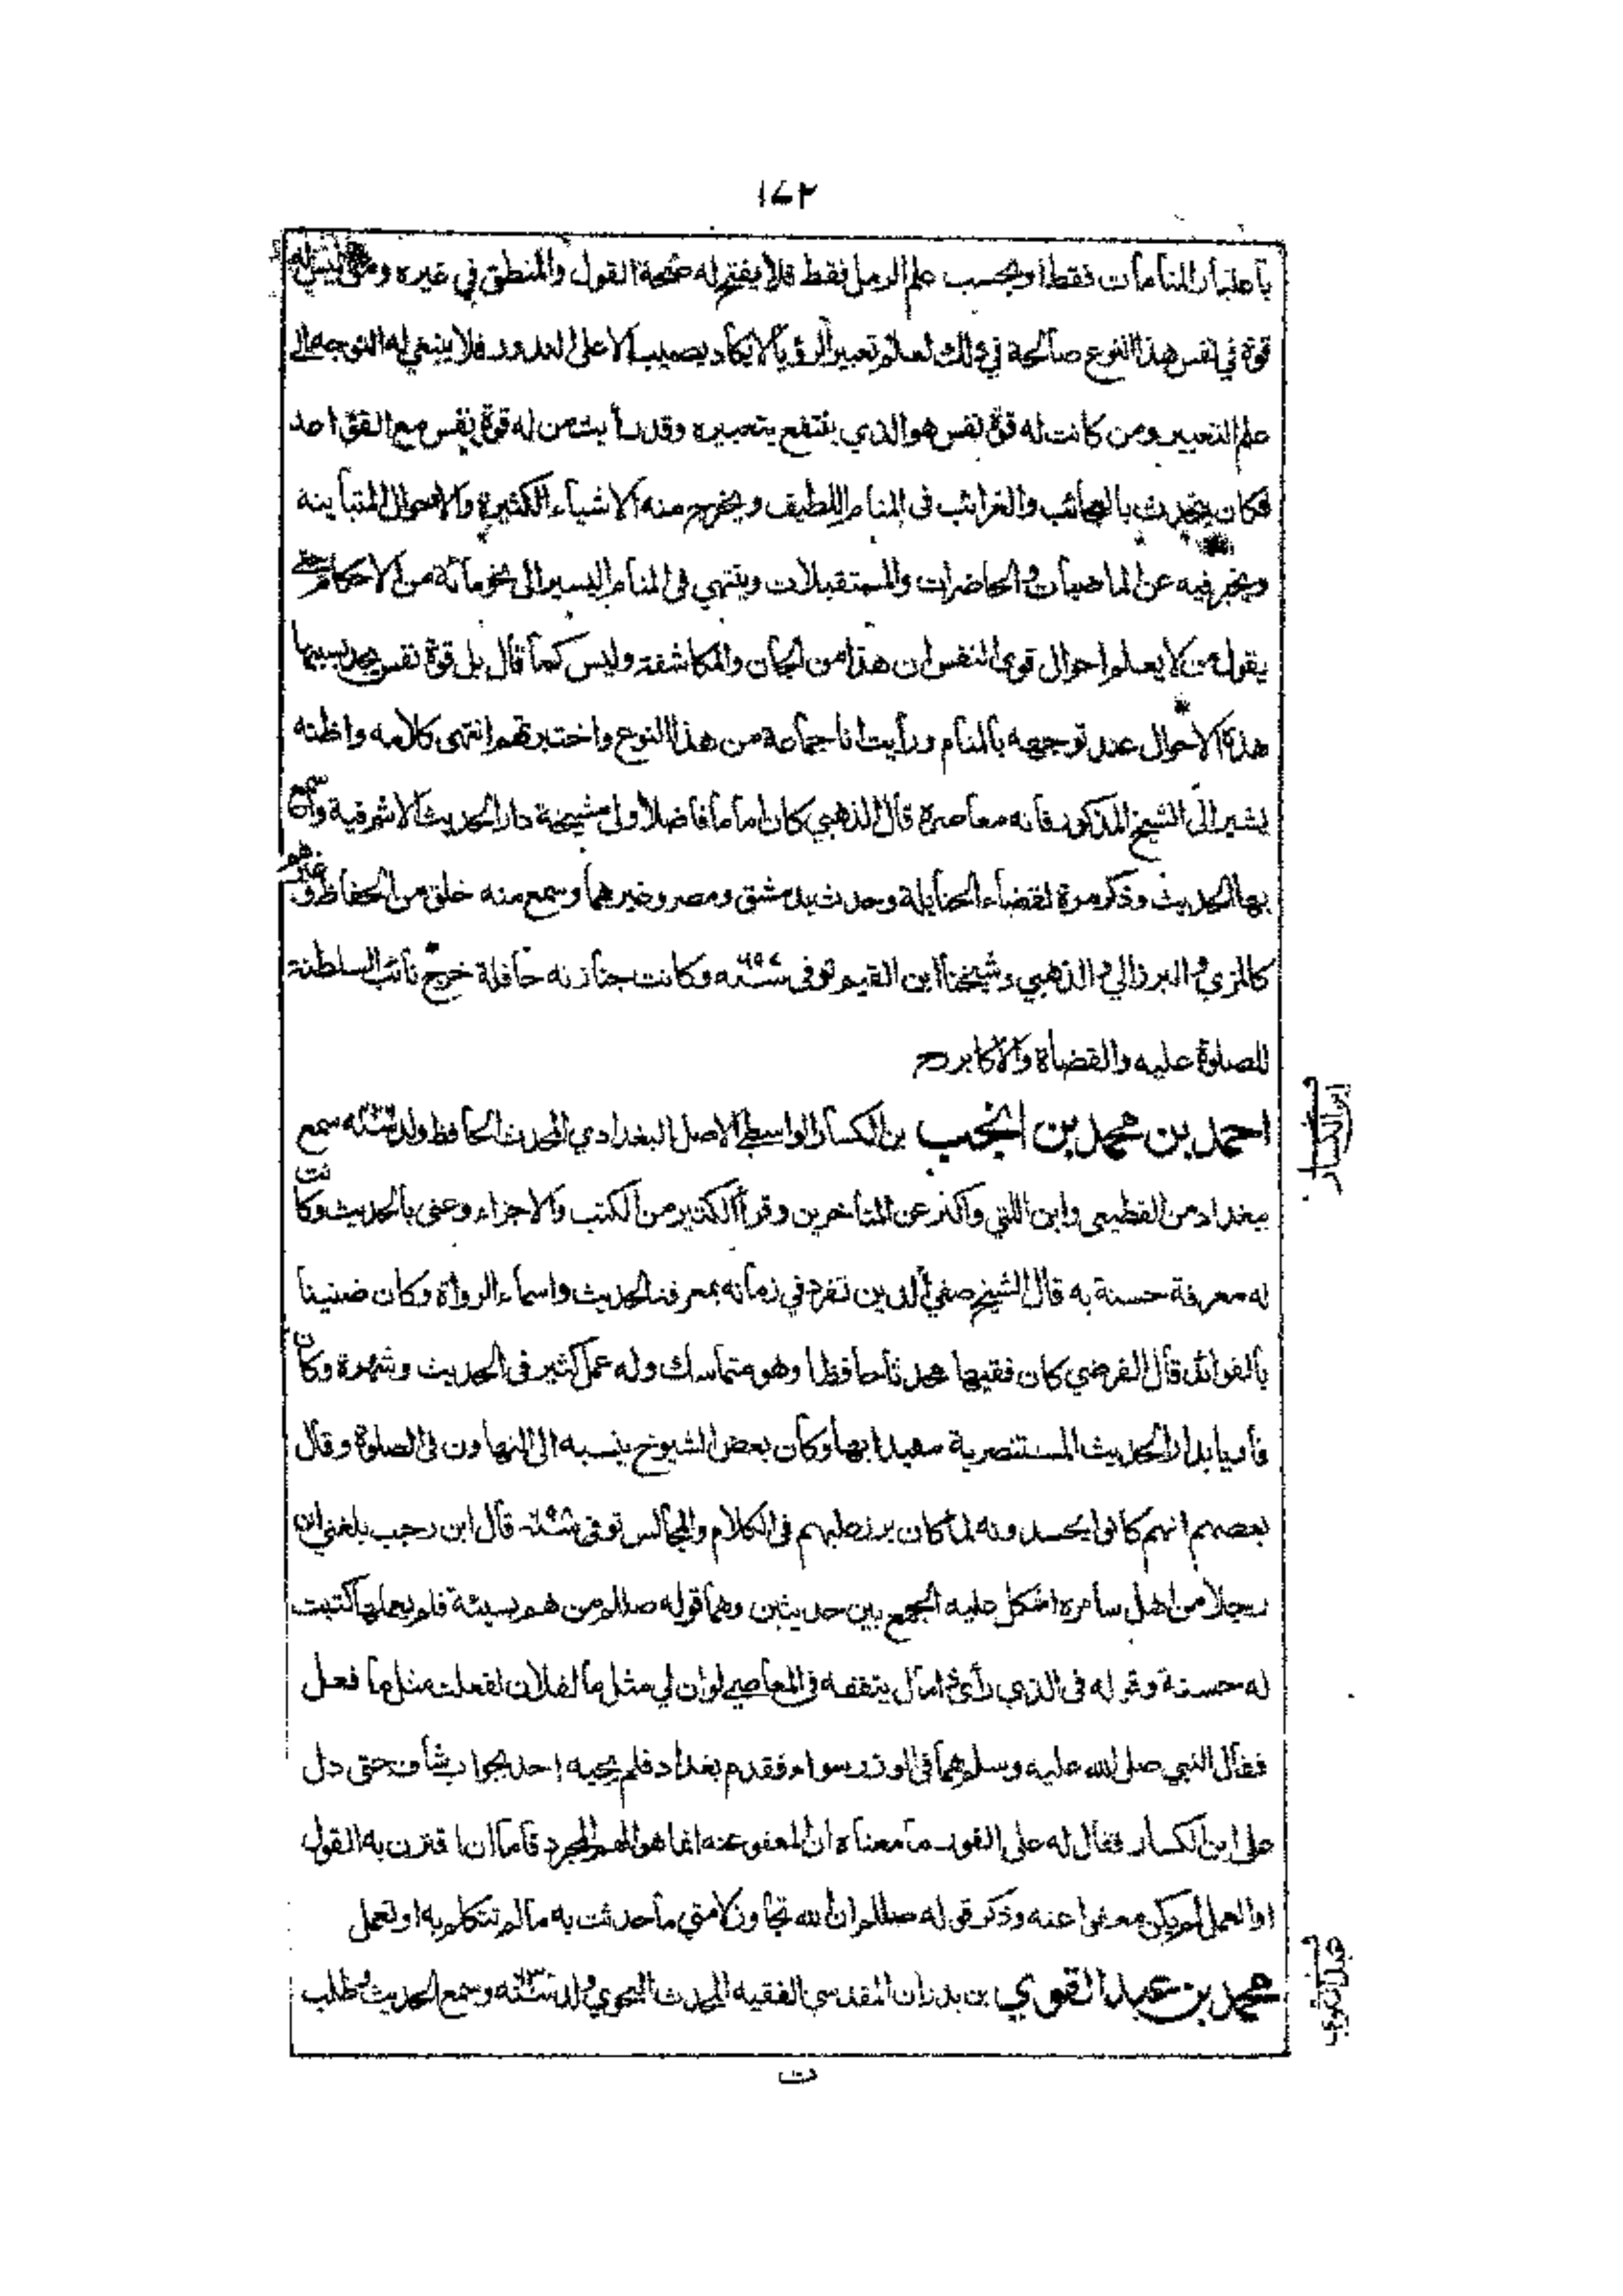 ١٤٢
باعتبار المنامات فقط أو بحسب علم الرمل فقط فلا يفتح له صحة القول والمنطق في غيره ومن ليس له
قوة في نفس هذا النوع صالحة في ذلك لعلم تعبير الرؤيا لا يكاد يصيب الا على الندور فلا ينبغي له التوجه الى
علم التعبير ومن كانت له قوة نفس هو الذي ينتفع بتعبيره وقد رأيت من له قوة نفس مع القواعد
فكان يتحدث بالعجائب والغرائب في المنام اللطيف ويخرج منه الاشياء الكثيرة والاحوال المتباينة
ويخبر فيه عن الماضيات والحاضرات والمستقبلات وينتهي في المنام اليسير الى نحو مائة من الاحكام حتى
يقول من لا يعلم احوال قوى النفس ان هذا من الجان والمكاشفة وليس كما قال بل قوة نفس يجد بسببها
هذه الاحوال عند توجهه بالمنام ورأيت انا جماعة من هذا النوع واختبرتهم انتهى كلامه واظنه
يشير الى الشيخ المذكور فانه معاصره قال الذهبي كان اماما فاضلا ولي مشيخة دار الحديث الاشرفية واسمع
بها الحديث وذكر مرة لقضاء الحنابلة وحدث بدمشق ومصر وغيرهما وسمع منه خلق من الحفاظ وغيرهم
كالمزي والبرزالي والذهبي وشيخنا ابن القيم توفي سنة وكانت جنازته حافلة خرج نائب السلطنة
للصلوة عليه والقضاة والاكابر رح
احمد بن محمد بن انجب بن الكسار الواسطي الاصل البغدادي المحدث الحافظ ولد سنة سمع
ببغداد من القطيعي وابن اللتي واكثر عن المتأخرين وقرأ الكثير من الكتب والاجزاء وعنى بالحديث وكانت
له معرفة حسنة به قال الشيخ صفي الدين تفرد في زمانه بمعرفة الحديث واسماء الرواة وكان ضنينا
بالفوائد قال الفرضي كان فقيها محدثا حافظا وهو متماسك وله عمل كثير في الحديث وشهرة وكان
قاريا بدار الحديث المستنصرية معيدا بها وكان بعض الشيوخ ينسبه الى التهاون في الصلوة وقال
بعضهم انهم كانوا يحسدونه لما كان يبرز عليهم في الكلام والمجالس توفي سنة قال ابن رجب بلغني ان
رجلا من اهل سامره اشكل عليه الجمع بين حديثين وهما قوله صللم من هم بسيئة فلم يعملها كتبت
له حسنة وقوله في الذي رأى ذا مال ينفقه في المعاصي لو ان لي مثل ما لفلان لفعلت مثل ما فعل
فقال النبي صلى الله عليه وسلم هما في الوزر سواء فقدم بغداد فلم يجبه احد بجواب شاف حتى دل
على ابن الكسار فقال له على الفور ما معناه ان المعفو عنه انما هو الهم المجرد فاما ان اقترن به القول
او العمل لم يكن معفوا عنه وذكر قوله صللم ان الله تجاوز لامتي ما حدثت به ما لم تتكلم به او تعمل
محمد بن عبد القوي بن بدران المقدسي الفقيه المحدث النحوي ولد سنة وسمع الحديث وطلب
ت
ابن الكسار
عبد القوي